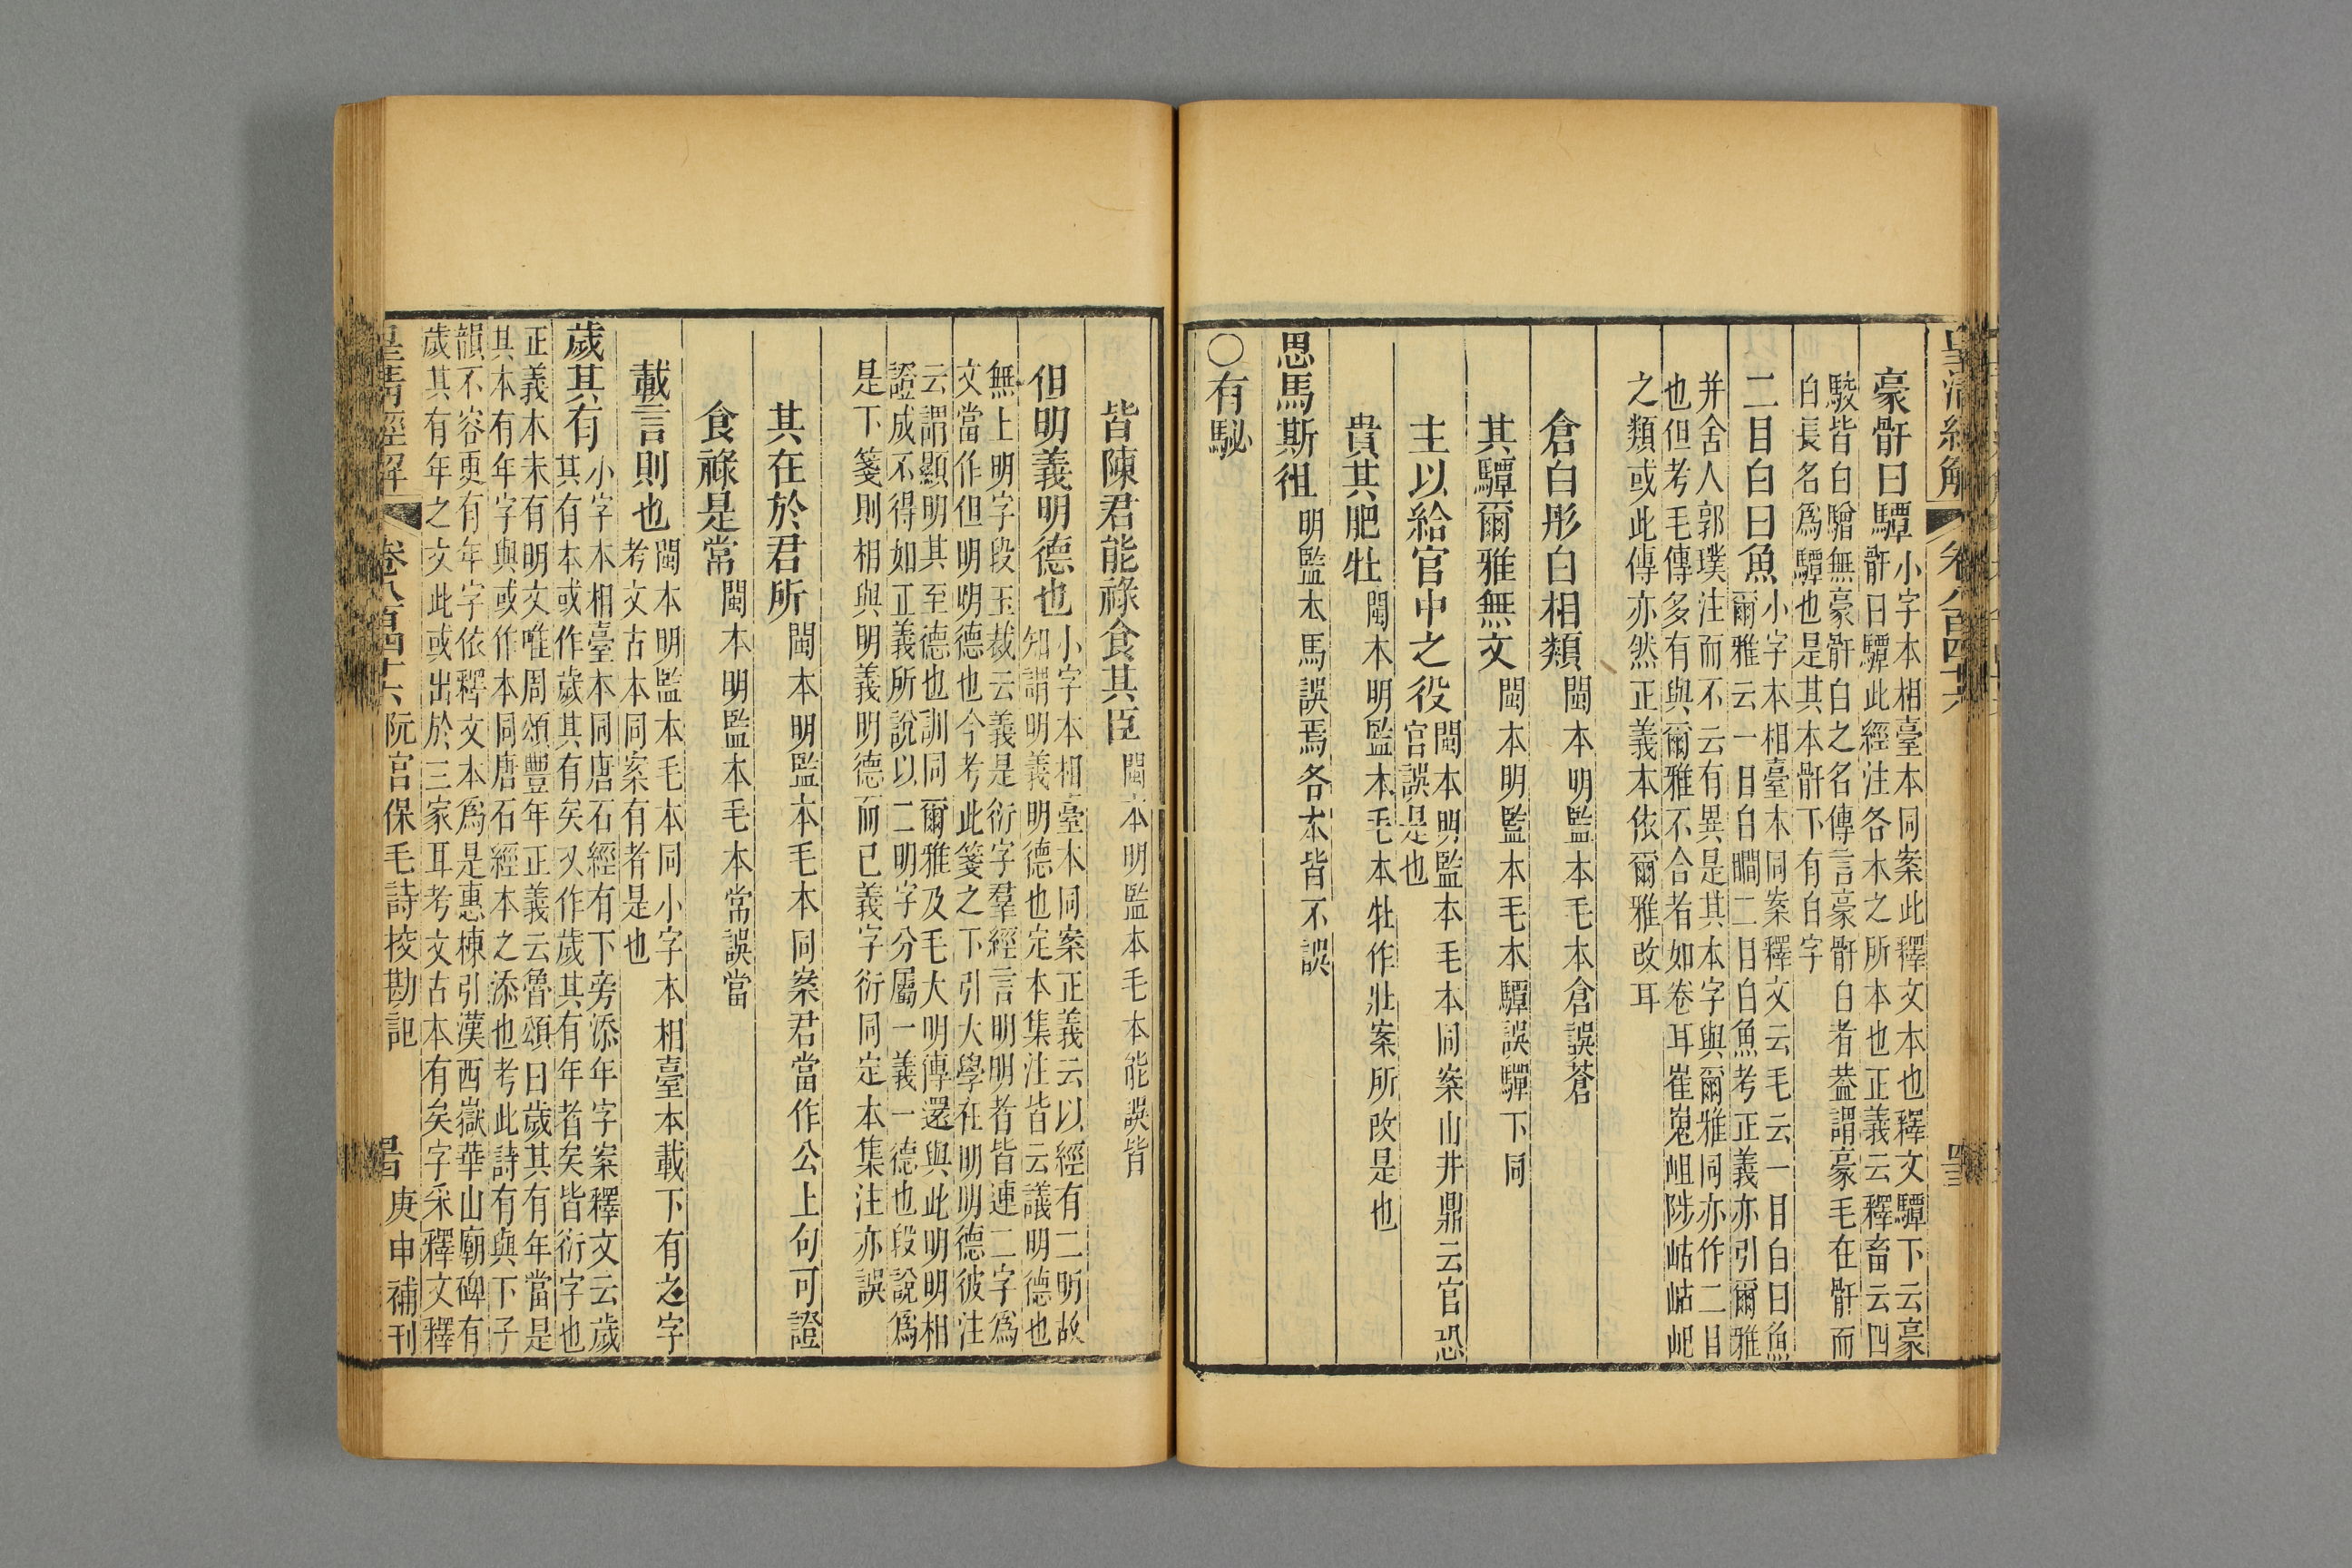 皇清經解 卷八百四十六
豪骭曰驔 小字本相臺本同案此釋文本也釋文驔下云豪
骭曰驔此經注各本之所本也正義云釋畜云四
駮皆白驓無豪骭白之名傳言豪骭白者葢謂豪毛在骭而
白長名爲驔也是其本骭下有白字
二目白曰魚 小字本相臺本同案釋文云毛云一目白曰魚
爾雅云一目白瞯二目白魚考正義亦引爾雅
并舍人郭璞注而不云有異是其本字與爾雅同亦作二目
也但考毛傳多有與爾雅不合者如卷耳崔嵬岨陟岵岵屺
之類或此傳亦然正義本依爾雅改耳
倉白彤白相類 閩本明監本毛本倉誤蒼
其驔爾雅無文 閩本明監本毛本驔誤驒下同
主以給官中之役 閩本明監本毛本同案山井鼎云官恐
官誤是也
貴其肥牡 閩本明監本毛本牡作壯案所改是也
思馬斯徂 明監本馬誤焉各本皆不誤
○有駜
皆陳君能祿食其臣 閩本明監本毛本能誤皆
但明義明德也 小字本相臺本同案正義云以經有二明故
知謂明義明德也定本集注皆云議明德也
無上明字段玉裁云義是衍字羣經言明明者皆連二字爲
文當作但明明德也今考此箋之下引大學在明明德彼注
云謂顯明其至德也訓同爾雅及毛大明傳還與此明明相
證成不得如正義所說以二明字分屬一義一德也段說爲
是下箋則相與明義明德而已義字衍同定本集注亦誤
其在於君所 閩本明監本毛本同案君當作公上句可證
食祿是常 閩本明監本毛本常誤當
載言則也 閩本明監本毛本同小字本相臺本載下有之字
考文古本同案有者是也
歲其有 小字本相臺本同唐石經有下旁添年字案釋文云歲
其有本或作歲其有矣又作歲其有年者矣皆衍字也
正義本未有明文唯周頌豐年正義云魯頌曰歲其有年當是
其本有年字與或作本同唐石經本之添也考此詩有與下子
韻不容更有年字依釋文本爲是惠棟引漢西嶽華山廟碑有
歲其有年之文此或出於三家耳考文古本有矣字采釋文釋
皇清經解 卷八百四十六 阮宮保毛詩挍勘記 庚申補刊